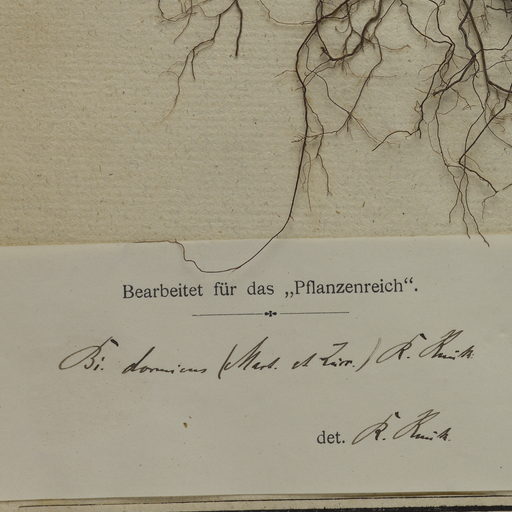 Bearbeitet für das „Pflanzenreich“.
Bi. dormiens (Mart. et Zucc.) R. Knuth
det. R. Knuth.